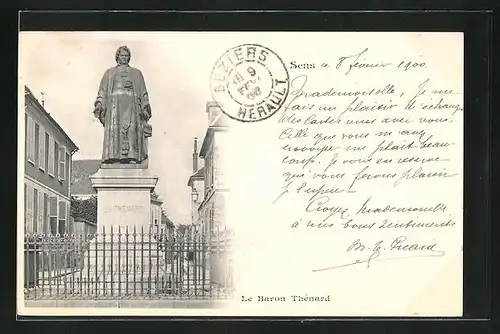 BÉZIERS
9
HÉRAULT
Sens
a 8 février 1900
Mademoiselle, Je me
fais un plaisir d'échanger
des cartes avec vous.
Celle que vous m'avez
envoyée me plaît beau-
coup. Je vous en
que vous ferons plaisir
J'espère
Croyez Mademoiselle
à mes bons sentiments
Picard
THÉNARD
Le Baron Thénard